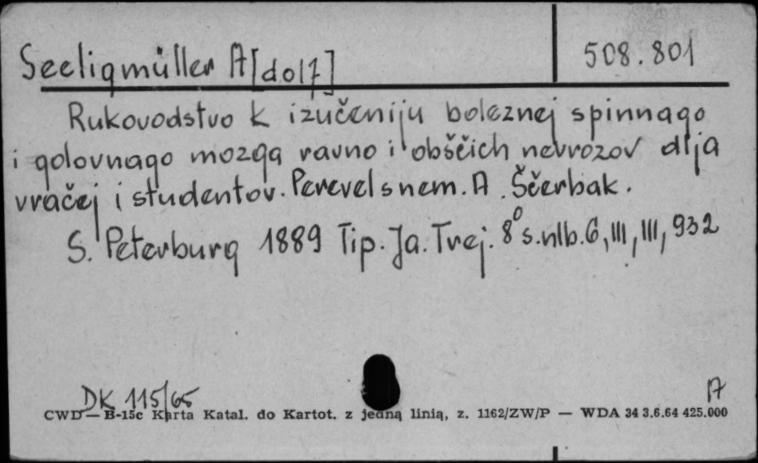 Seeligmüller A[dolf]
508.801
Rukovodstvo k izučeniju boleznej spinnago
i golovnago mozga ravno i obščich nevrozov dlja
vračej i studentov. Perevel s nem. A. Ščerbak.
S. Peterburg 1889 Tip. Ja. Trej. 8° s. nlb. 6, III, III, 932
DK 115/65
A
CWD — B-15c Karta Katal. do Kartot. z jedną linią, z. 1162/ZW/P — WDA 34 3.6.64 425.000